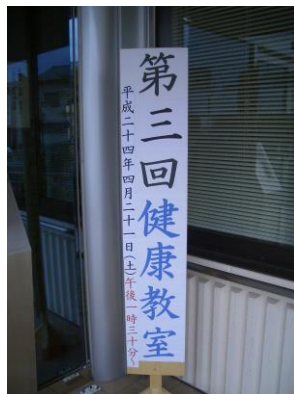 第三回健康教室
平成二十四年四月二十一日(土)午後一時三十分〜